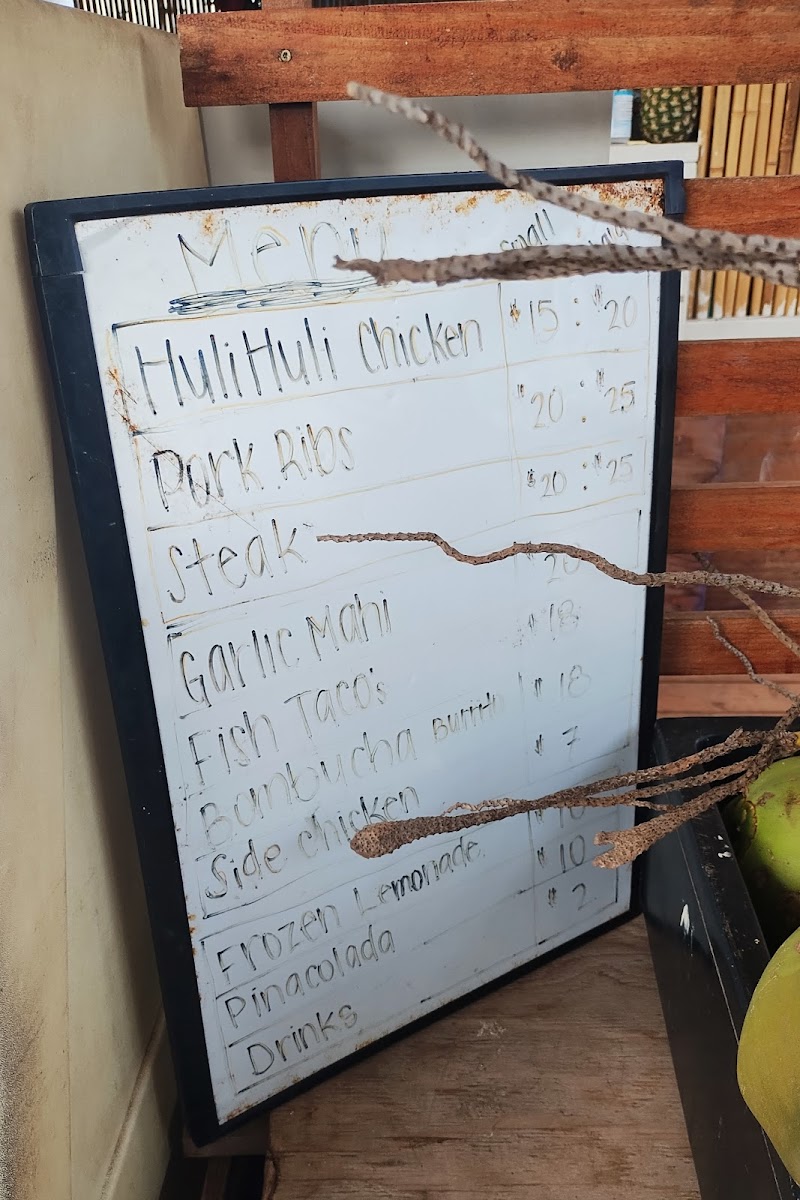 Menu small
HuliHuli Chicken $15 : $20
Pork Ribs $20 : $25
Steak $20 : $25
Garlic Mahi $20
Fish Taco's $18
Bambucha Burrito $18
Side Chicken $7
Frozen Lemonade $10
Pinacolada $10
Drinks $2